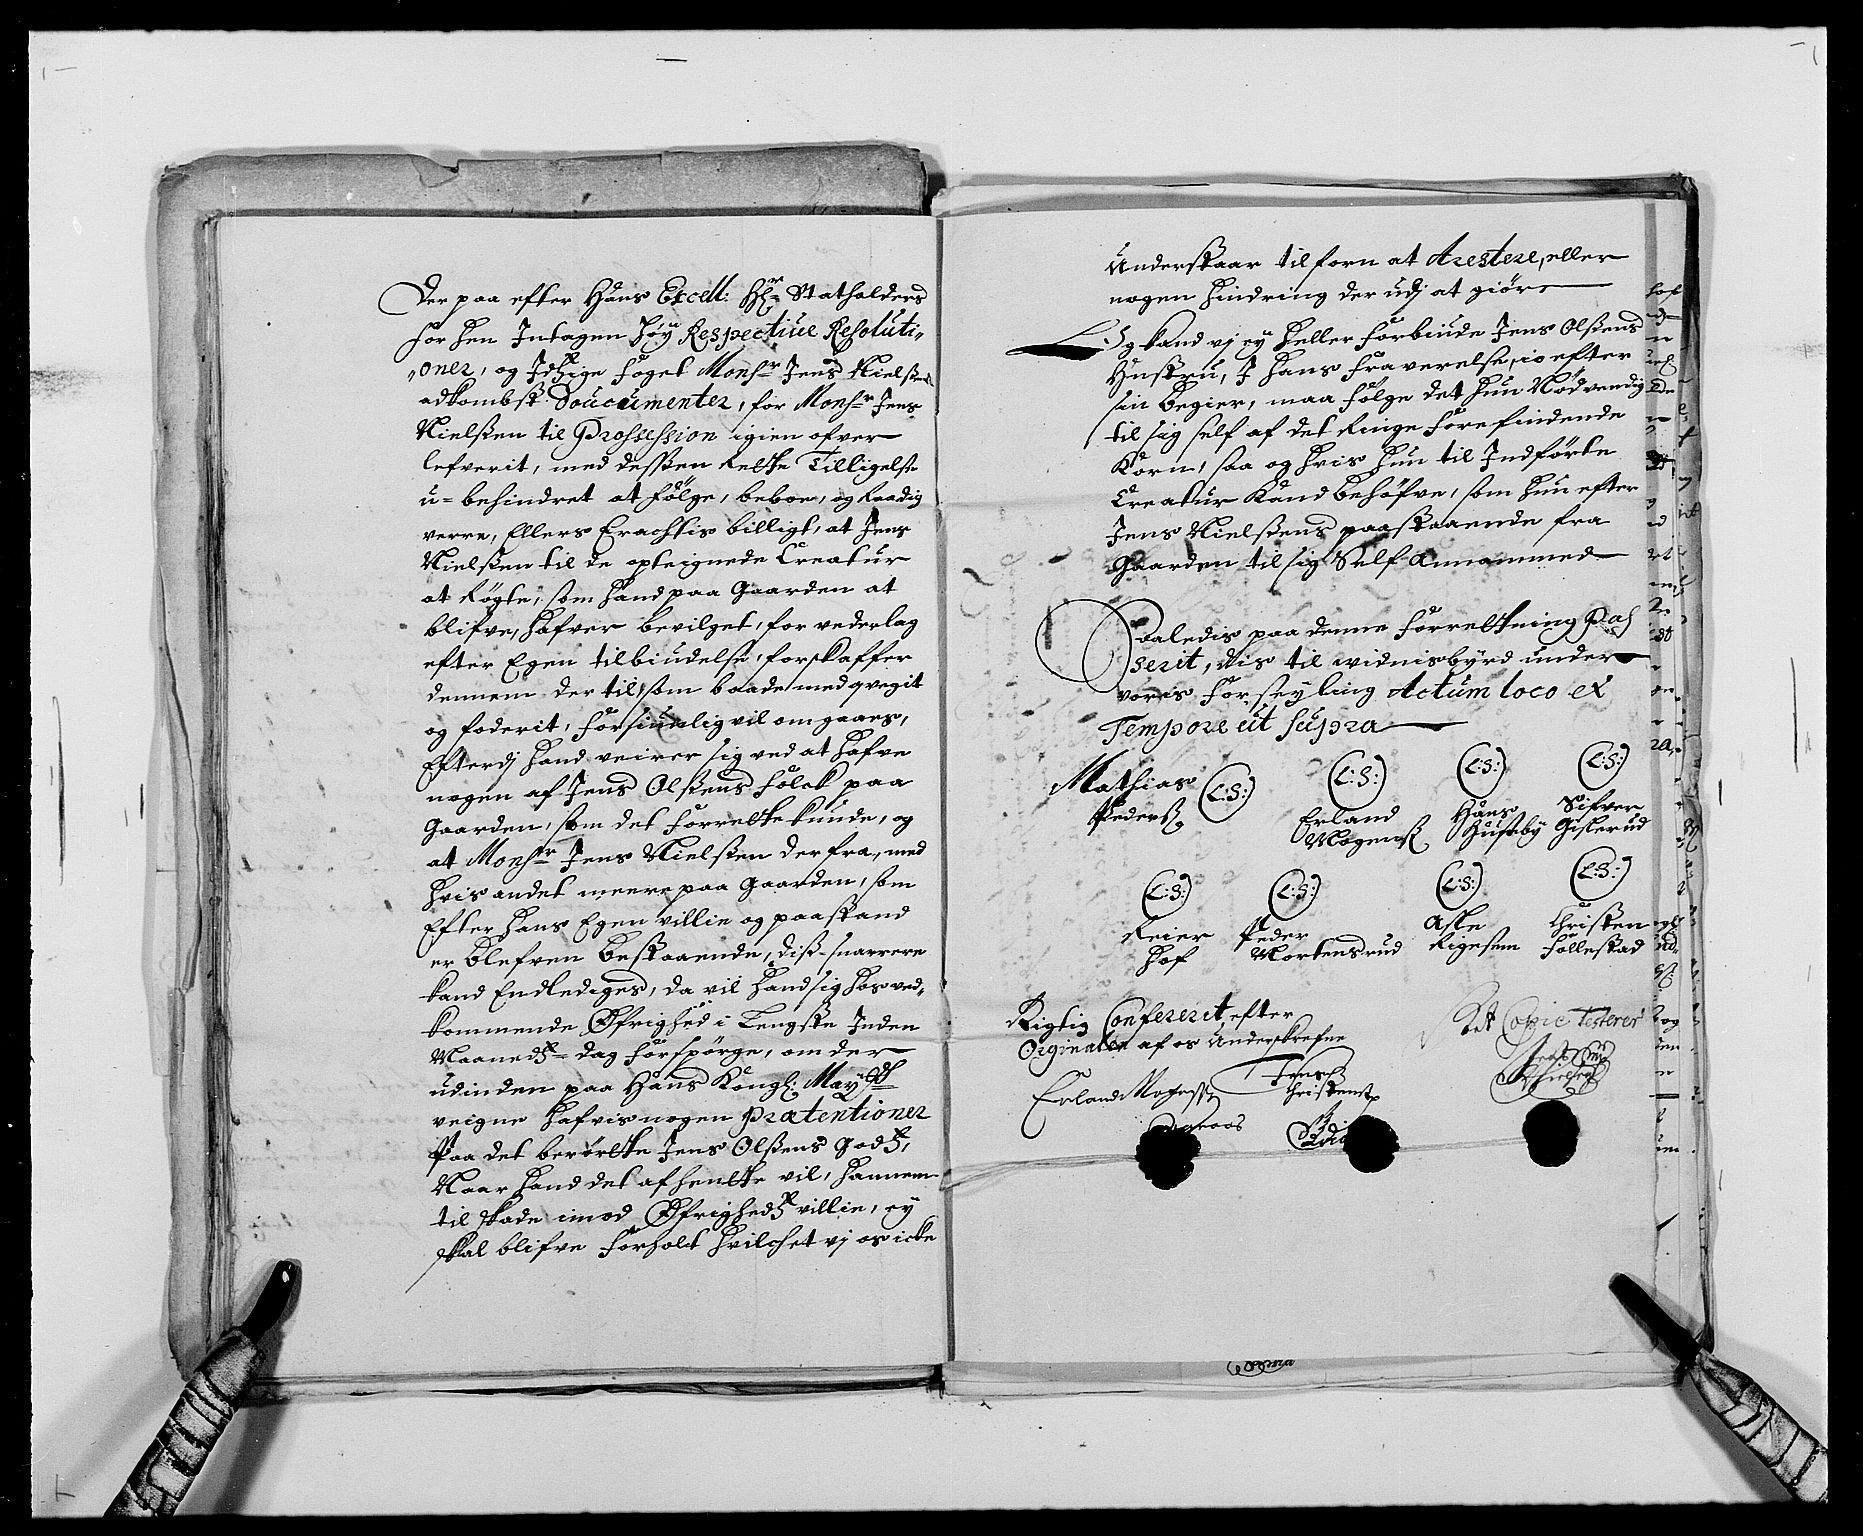 Der paa efter Hans Excell: Hr Statholders
for hen Intagen Høy Respective Resoluti„
„oner, og Itzige foget Monsr Jens Nielßens
adkombst Doucumenter, for Monsr Jens
Nielßen til Prossession igien ofver
lefverit, med desßen Rette Tilligelse
u=behindret at følge, beboe, og Raadig
verre, Ellers Erachtis billigt, at Jens
Nielßen til de opteignede Creatur
at Røgte, som hand paa Gaarden at
blifve, hafver bevilget, for vederlag
efter Egen tilbindelse, forskaffer
dennem der til, som baade med qvegit
og foderit, forsiunlig vil omgaaes,
Efterdj hand veirer sig ved at hafve
nogen af Jens Olßens Folck paa
Gaarden, som det forrette kunde, og
at Monsr Jens Nielßen der fra, med
hvis andet meere paa Gaarden, som
Efter hans Egen villie og paastand
er blefven Bestaaende, diß snarere
kand Endlediges, da vil hand sig hos ved„
kommende Øfrighed i Lengste Inden
Maanedtz dag forspørge, om der
udinden paa Hans Kongl: Maytz
veigne hafvis nogen Prætentioner
Paa det berørte Jens Olßens godtz,
Naar hand det afhente vil, hannem
til skade imod Øfrighedtz villie, ey
skal blifve forholt hvilchet vj os icke
Understaar tilforn at Arestere, eller
nogen hindring der udj at giøre
Og kand vj ey heller forbiude Jens Olßens
Hustru, I hans fraverelse, io efter
sin begier, maa følge det hun Nødvendig
til sig self af det Ringe forefindende
Korn, saa og hvis hun til Indførte
Creatur kand behøfve, som hun efter
Jens Nielßens paastaaende fra
Gaarden til sig Self Annammed
Saaledis paa denne forretning Pas
serit, dis til widnisbyrd under
voris forseyling Actum loco et
Tempore ut supra
Mathias
Pederß (L:S:)
(L:S:) (L:S:) (L:S:)
Erland Hans Sifver
Mogenß Husby Gislerud
(L:S:) (L:S:) (L:S:) (L:S:)
Reier Peder Aste Christen
Hof Mortensrud Rigesem Follestad
Rigtig Confererit efter
Orginalen af os Underskrefne
Erland Mogenß Jens
Christenß
Ret Copie Testerer
Jens
Nielsen